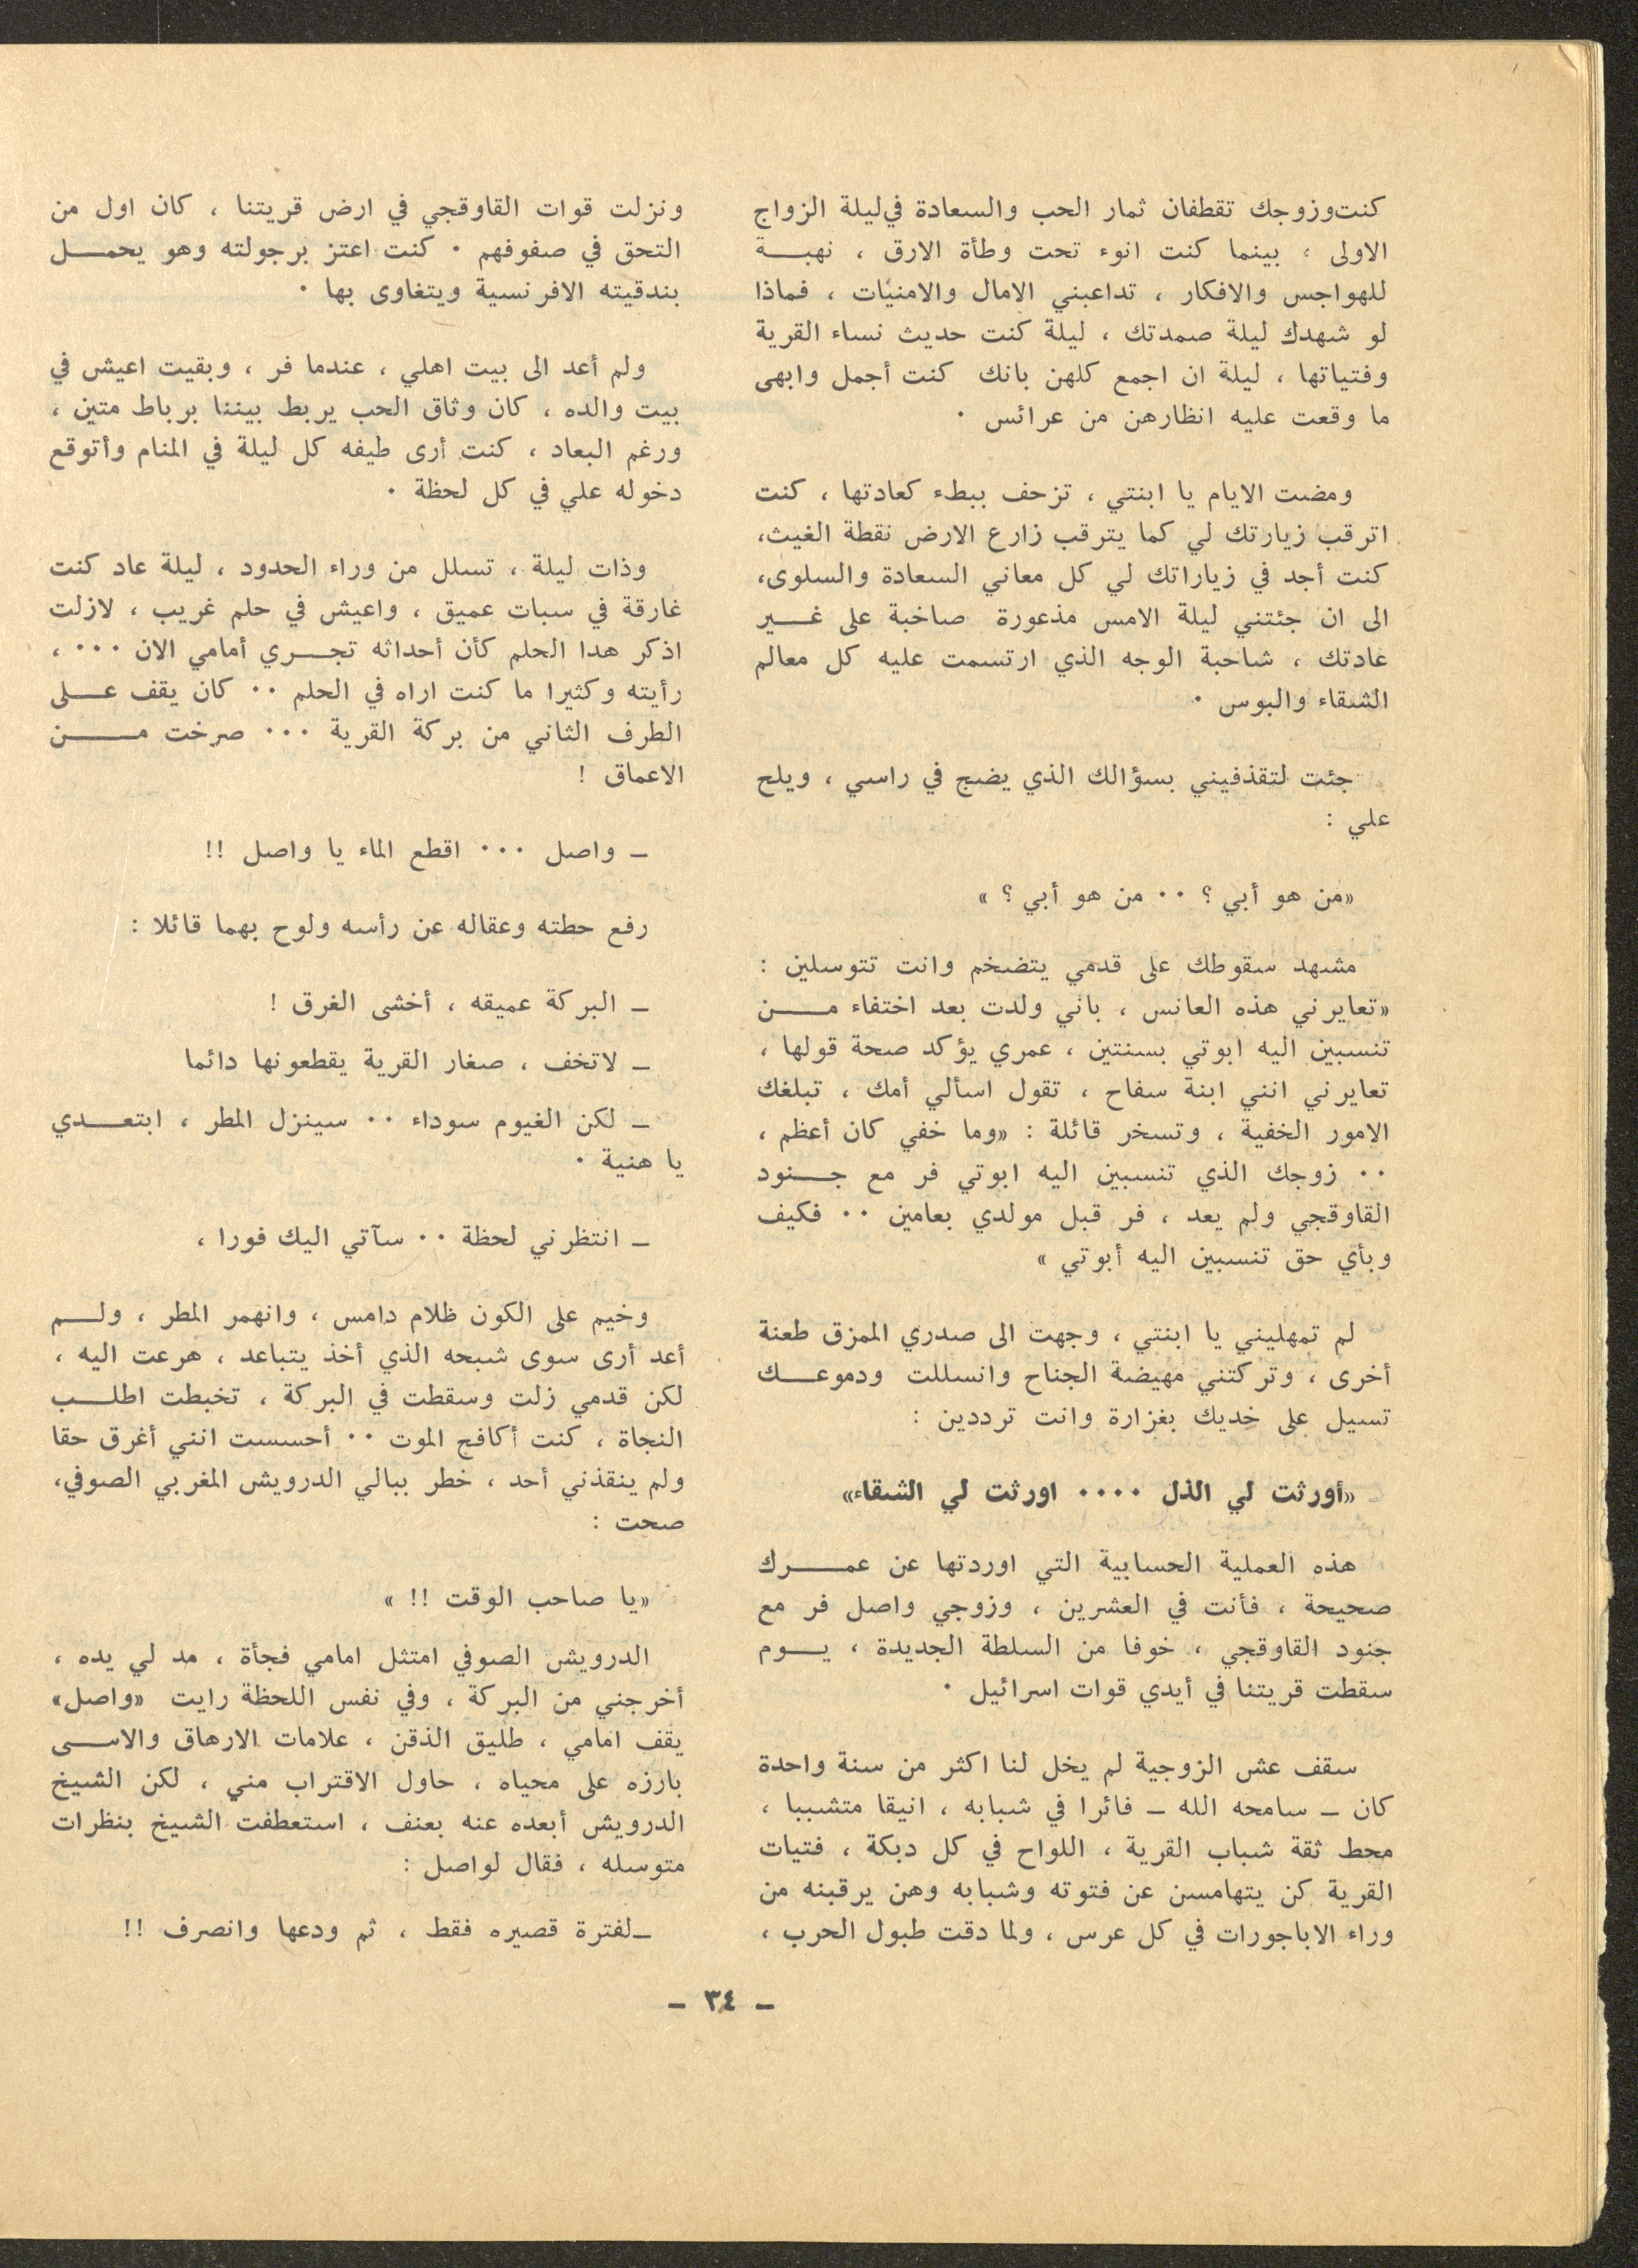 كنت وزوجك تقطفان ثمار الحب والسعادة في ليلة الزواج
الاولى ، بينما كنت انوء تحت وطأة الارق ، نهبة
للهواجس والافكار ، تداعبني الامال والامنيات ، فماذا
لو شهدك ليلة صمدتك ، ليلة كنت حديث نساء القرية
وفتياتها ، ليلة ان اجمع كلهن بانك كنت أجمل وابهى
ما وقعت عليه انظارهن من عرائس ٠
ومضت الايام يا ابنتي ، تزحف ببطء كعادتها ، كنت
اترقب زيارتك لي كما يترقب زارع الارض نقطة الغيث،
كنت أجد في زياراتك لي كل معاني السعادة والسلوى،
الى ان جئتني ليلة الامس مذعورة صاخبة على غير
عادتك ، شاحبة الوجه الذي ارتسمت عليه كل معالم
الشقاء والبوس ٠
جئت لتقذفيني بسؤالك الذي يضج في راسي ، ويلح
علي :
«من هو أبي ؟ ٠٠ من هو أبي ؟ »
مشهد سقوطك على قدمي يتضخم وانت تتوسلين :
«تعايرني هذه العانس ، باني ولدت بعد اختفاء من
تنسبين اليه ابوتي بسنتين ، عمري يؤكد صحة قولها ،
تعايرني انني ابنة سفاح ، تقول اسألي أمك ، تبلغك
الامور الخفية ، وتسخر قائلة : «وما خفي كان أعظم ،
٠٠ زوجك الذي تنسبين اليه ابوتي فر مع جنود
القاوقجي ولم يعد ، فر قبل مولدي بعامين ٠٠ فكيف
وبأي حق تنسبين اليه أبوتي »
لم تمهليني يا ابنتي ، وجهت الى صدري الممزق طعنة
أخرى ، وتركتني مهيضة الجناح وانسللت ودموعك
تسيل على خديك بغزارة وانت ترددين :
«أورثت لي الذل ٠٠٠٠ اورثت لي الشقاء»
هذه العملية الحسابية التي اوردتها عن عمرك
صحيحة ، فأنت في العشرين ، وزوجي واصل فر مع
جنود القاوقجي ، خوفا من السلطة الجديدة ، يوم
سقطت قريتنا في أيدي قوات اسرائيل ٠
سقف عش الزوجية لم يخل لنا اكثر من سنة واحدة
كان ــ سامحه الله ــ فائرا في شبابه ، انيقا متشببا ،
محط ثقة شباب القرية ، اللواح في كل دبكة ، فتيات
القرية كن يتهامسن عن فتوته وشبابه وهن يرقبنه من
وراء الاباجورات في كل عرس ، ولما دقت طبول الحرب ،
ونزلت قوات القاوقجي في ارض قريتنا ، كان اول من
التحق في صفوفهم ٠ كنت اعتز برجولته وهو يحمل
بندقيته الافرنسية ويتغاوى بها ٠
ولم أعد الى بيت اهلي ، عندما فر ، وبقيت اعيش في
بيت والده ، كان وثاق الحب يربط بيننا برباط متين ،
ورغم البعاد ، كنت أرى طيفه كل ليلة في المنام وأتوقع
دخوله علي في كل لحظة ٠
وذات ليلة ، تسلل من وراء الحدود ، ليلة عاد كنت
غارقة في سبات عميق ، واعيش في حلم غريب ، لازلت
اذكر هدا الحلم كأن أحداثه تجري أمامي الان ٠٠٠ ،
رأيته وكثيرا ما كنت اراه في الحلم ٠٠ كان يقف على
الطرف الثاني من بركة القرية ٠٠٠ صرخت من
الاعماق !
ــ واصل ٠٠٠ اقطع الماء يا واصل !!
رفع حطته وعقاله عن رأسه ولوح بهما قائلا :
ــ البركة عميقه ، أخشى الغرق !
ــ لاتخف ، صغار القرية يقطعونها دائما
ــ لكن الغيوم سوداء ٠٠ سينزل المطر ، ابتعدي
يا هنية ٠
ــ انتظرني لحظة ٠٠ سآتي اليك فورا ،
وخيم على الكون ظلام دامس ، وانهمر المطر ، ولم
أعد أرى سوى شبحه الذي أخذ يتباعد ، هرعت اليه ،
لكن قدمي زلت وسقطت في البركة ، تخبطت اطلب
النجاة ، كنت أكافح الموت ٠٠ أحسست انني أغرق حقا
ولم ينقذني أحد ، خطر ببالي الدرويش المغربي الصوفي،
صحت :
«يا صاحب الوقت !! »
الدرويش الصوفي امتثل امامي فجأة ، مد لي يده ،
أخرجني من البركة ، وفي نفس اللحظة رايت «واصل»
يقف امامي ، طليق الذقن ، علامات الارهاق والاسى
بارزه على محياه ، حاول الاقتراب مني ، لكن الشيخ
الدرويش أبعده عنه بعنف ، استعطفت الشيخ بنظرات
متوسله ، فقال لواصل :
ــلفترة قصيره فقط ، ثم ودعها وانصرف !!
ــ ٣٤ ــ